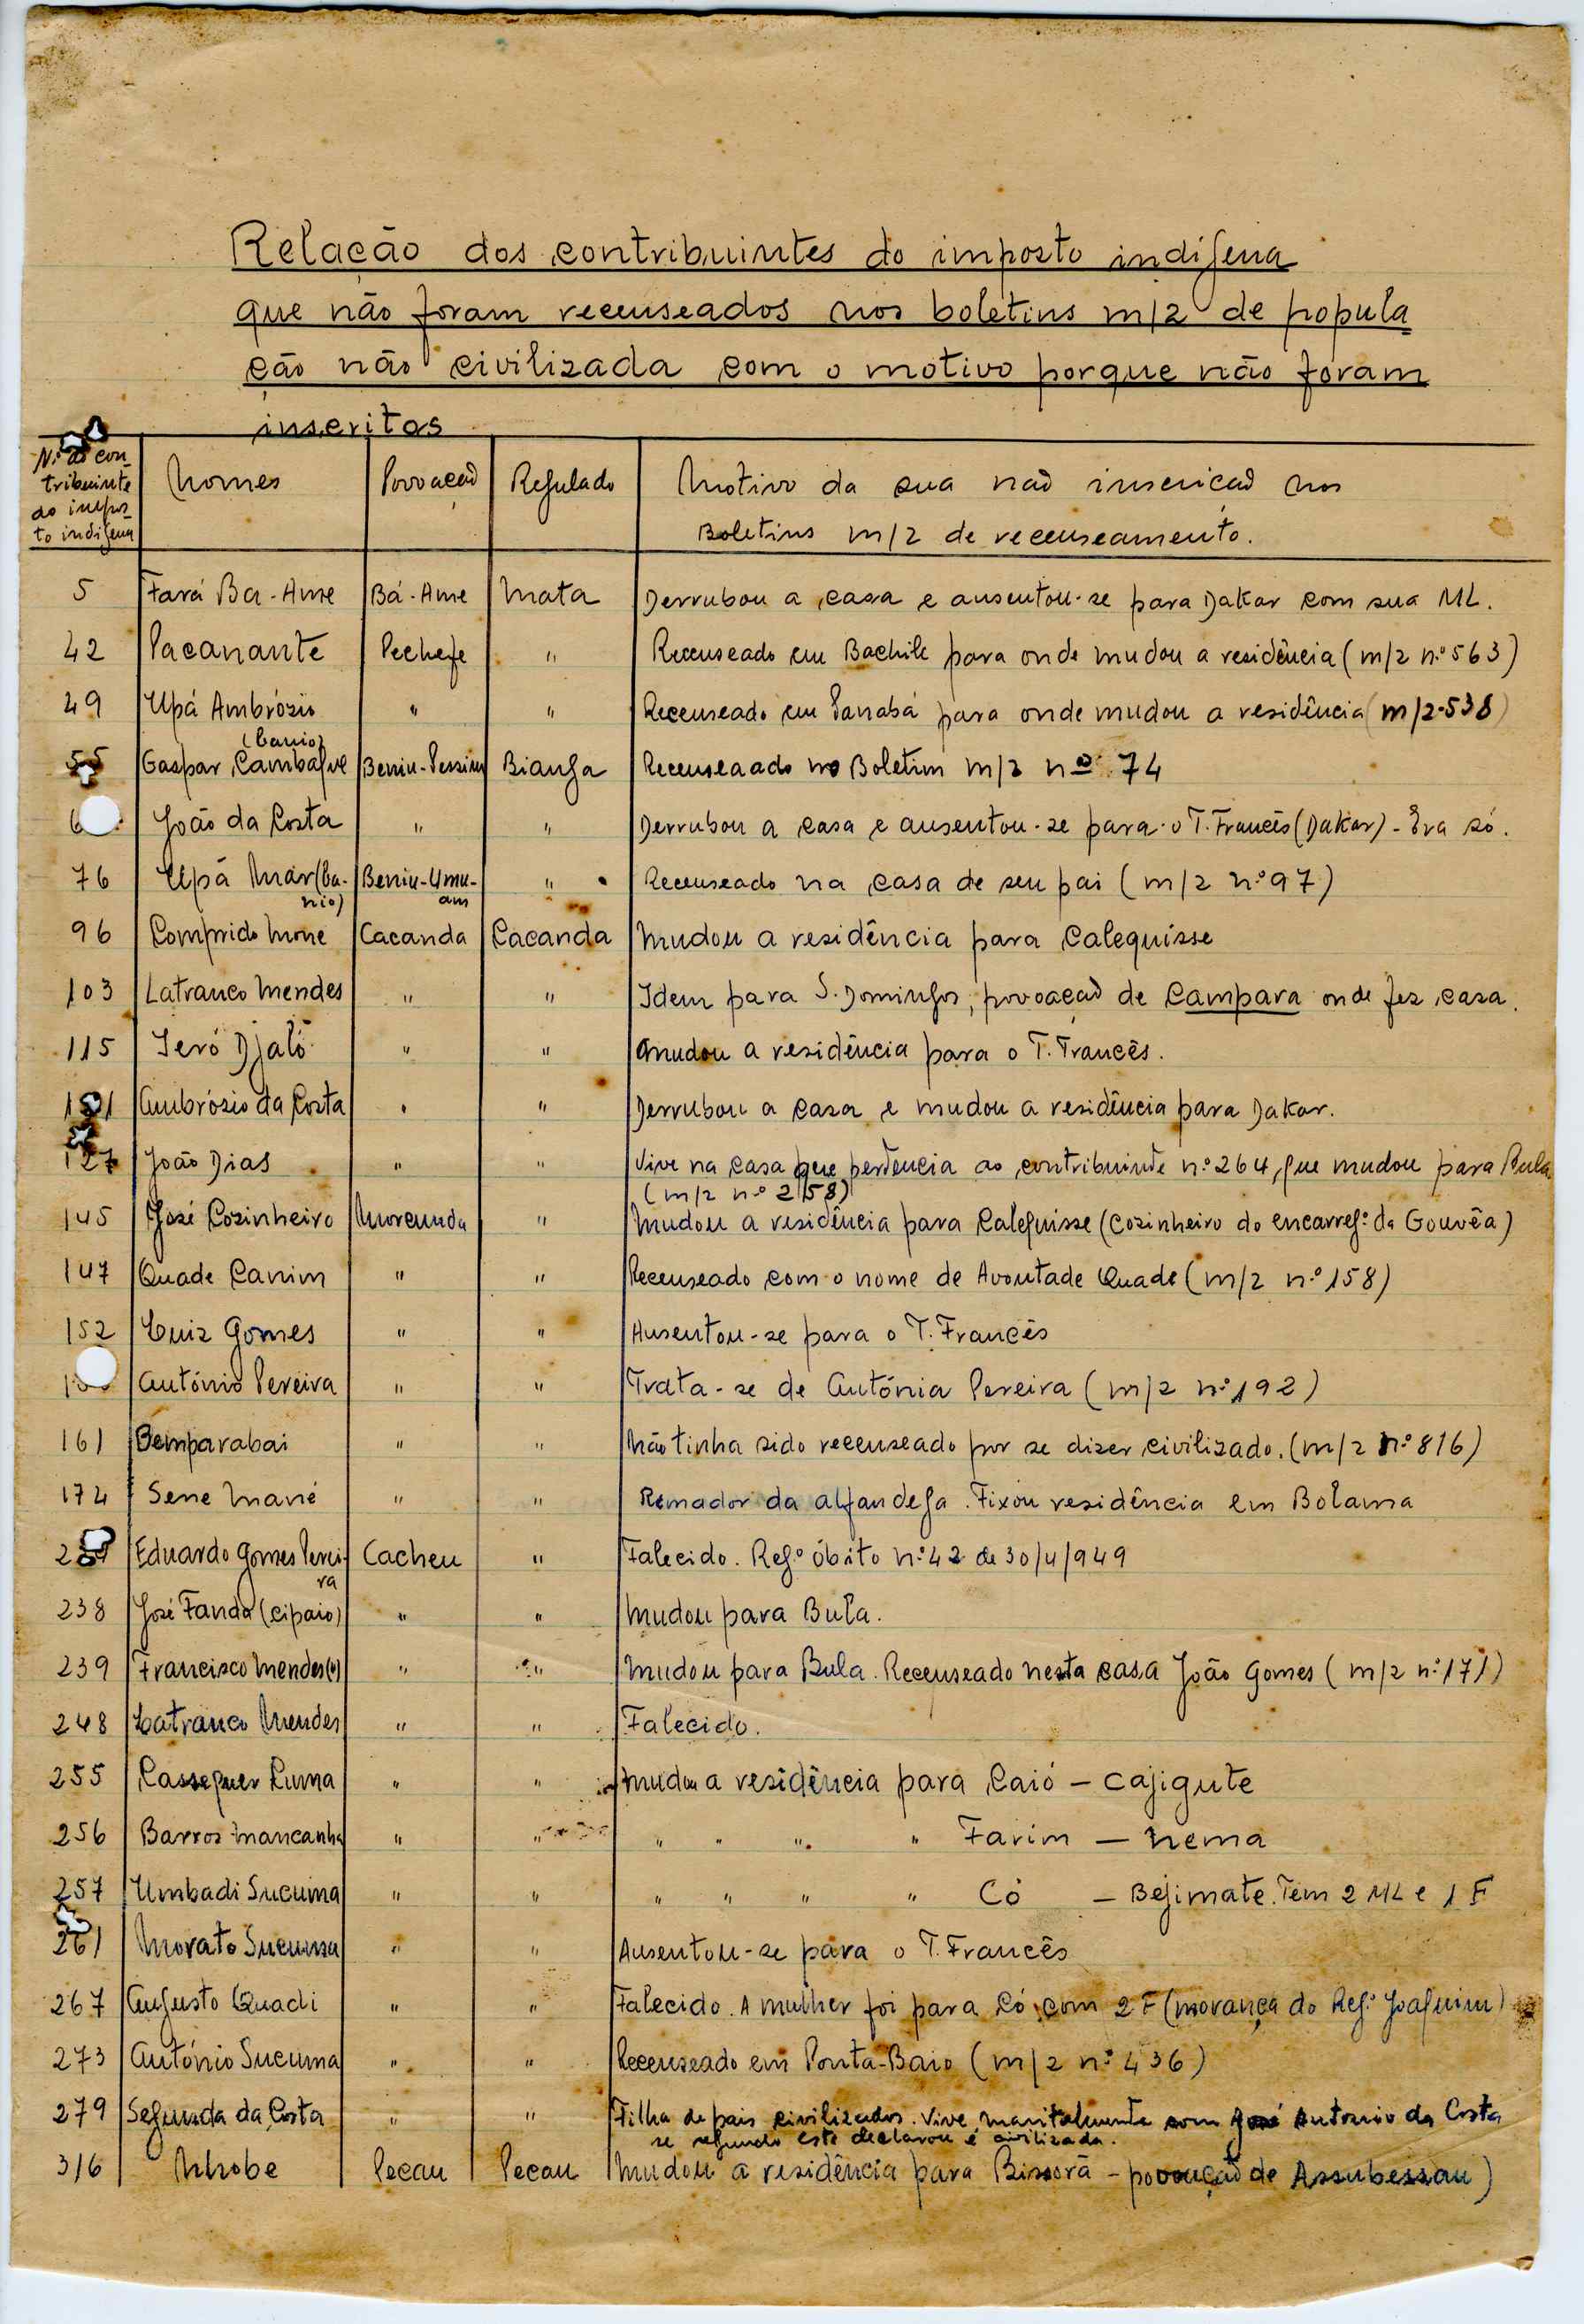 Relação dos contribuintes do imposto indígena
que não foram recenseados nos boletins m/2 de popula
ção não civilizada com o motivo porque não foram
inscritos
N.º do con-
tribuinte
do impos-
to indígena
Nomes Povoação Regulado Motivo da sua não inscrição nos
Boletins m/2 de recenseamento.
5 Fará Ba-Ame Bá-Ame Mata Derrubou a casa e ausentou-se para Dakar com sua ML.
42 Pacanante Pechefe " Recenseado em Bachile para onde mudou a residência (m/2 n.º 563)
49 Upá Ambrósio " " Recenseado em Panabá para onde mudou a residência (m/2-538)
(banio)
55 Gaspar Cambafve Beniu-Pessim Bianga Recenseaado no Boletim m/2 nº 74
João da Costa " " Derrubou a casa e ausentou-se para o T. Francês (Dakar) - Era só.
76 Upá Mar (ba- Beniu-Umu- " Recenseado na casa de seu pai (m/2 n.º 97)
nio) am
96 Comprido Mone Cacanda Cacanda Mudou a residência para Calequisse
103 Latranco Mendes " " Idem para S. Domingos, povoação de Campara onde fez casa.
115 Jeró Djaló " " Mudou a residência para o T. Francês.
Ambrósio da Costa " " Derrubou a casa e mudou a residência para Dakar.
127 João Dias " " Vive na casa que pertencia ao contribuinte n.º 264, que mudou para Bula
(m/2 n.º 258)
145 José Cozinheiro Morcunda " Mudou a residência para Calequisse (cozinheiro do encarreg.º da Gouvêa)
147 Quade Canim " " Recenseado com o nome de Avontade Quade (m/2 n.º 158)
152 Luiz Gomes " " Ausentou-se para o T. Francês
António Pereira " " Trata-se de Antónia Pereira (m/2 n.º 192)
161 Bemparabai " " Não tinha sido recenseado por se dizer civilizado. (m/2 n.º 816)
174 Sene Mané " " Remador da alfandega. Fixou residência em Bolama
Eduardo Gomes Perei- Cacheu " Falecido. Reg.º óbito n.º 42 de 30/4/949
ra
238 José Fanda (cipaio) " " Mudou para Bula.
239 Francisco Mendes (c) " " Mudou para Bula. Recenseado nesta casa João Gomes (m/2 n.º 171)
248 Latranco Mendes " " Falecido.
255 Cassequer Cuma " " Mudou a residência para Caió - Cajigute
256 Barros Mancanha " " " " " " Farim - Nema
257 Umbadi Sucuma " " " " " " Có - Bejimate. Tem 2 ML e 1 F
261 Morato Sucuma " " Ausentou-se para o T. Francês
267 Augusto Quadi " " Falecido. A mulher foi para Có com 2 F (morança do Reg.º Joaquim)
273 António Sucuma " " Recenseado em Ponta-Baio (m/2 n.º 436)
279 Segunda da Costa " " Filha de pais civilizados. Vive maritalmente com José Antonio da Costa
se segundo este declarou é civilizada.
316 Nhobe Pecau Pecau Mudou a residência para Bissorã - povoação de Assubessau)